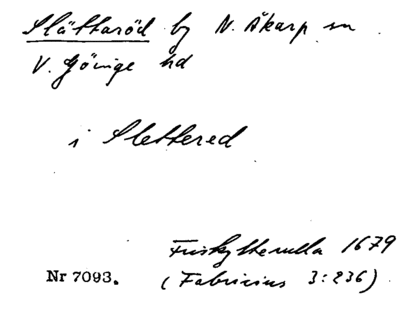 Slättaröd by N. Åkarp sn
V. Göinge hd
i Slettered
Friskytterulla 1679
Nr 7093. (Fabricius 3:236)